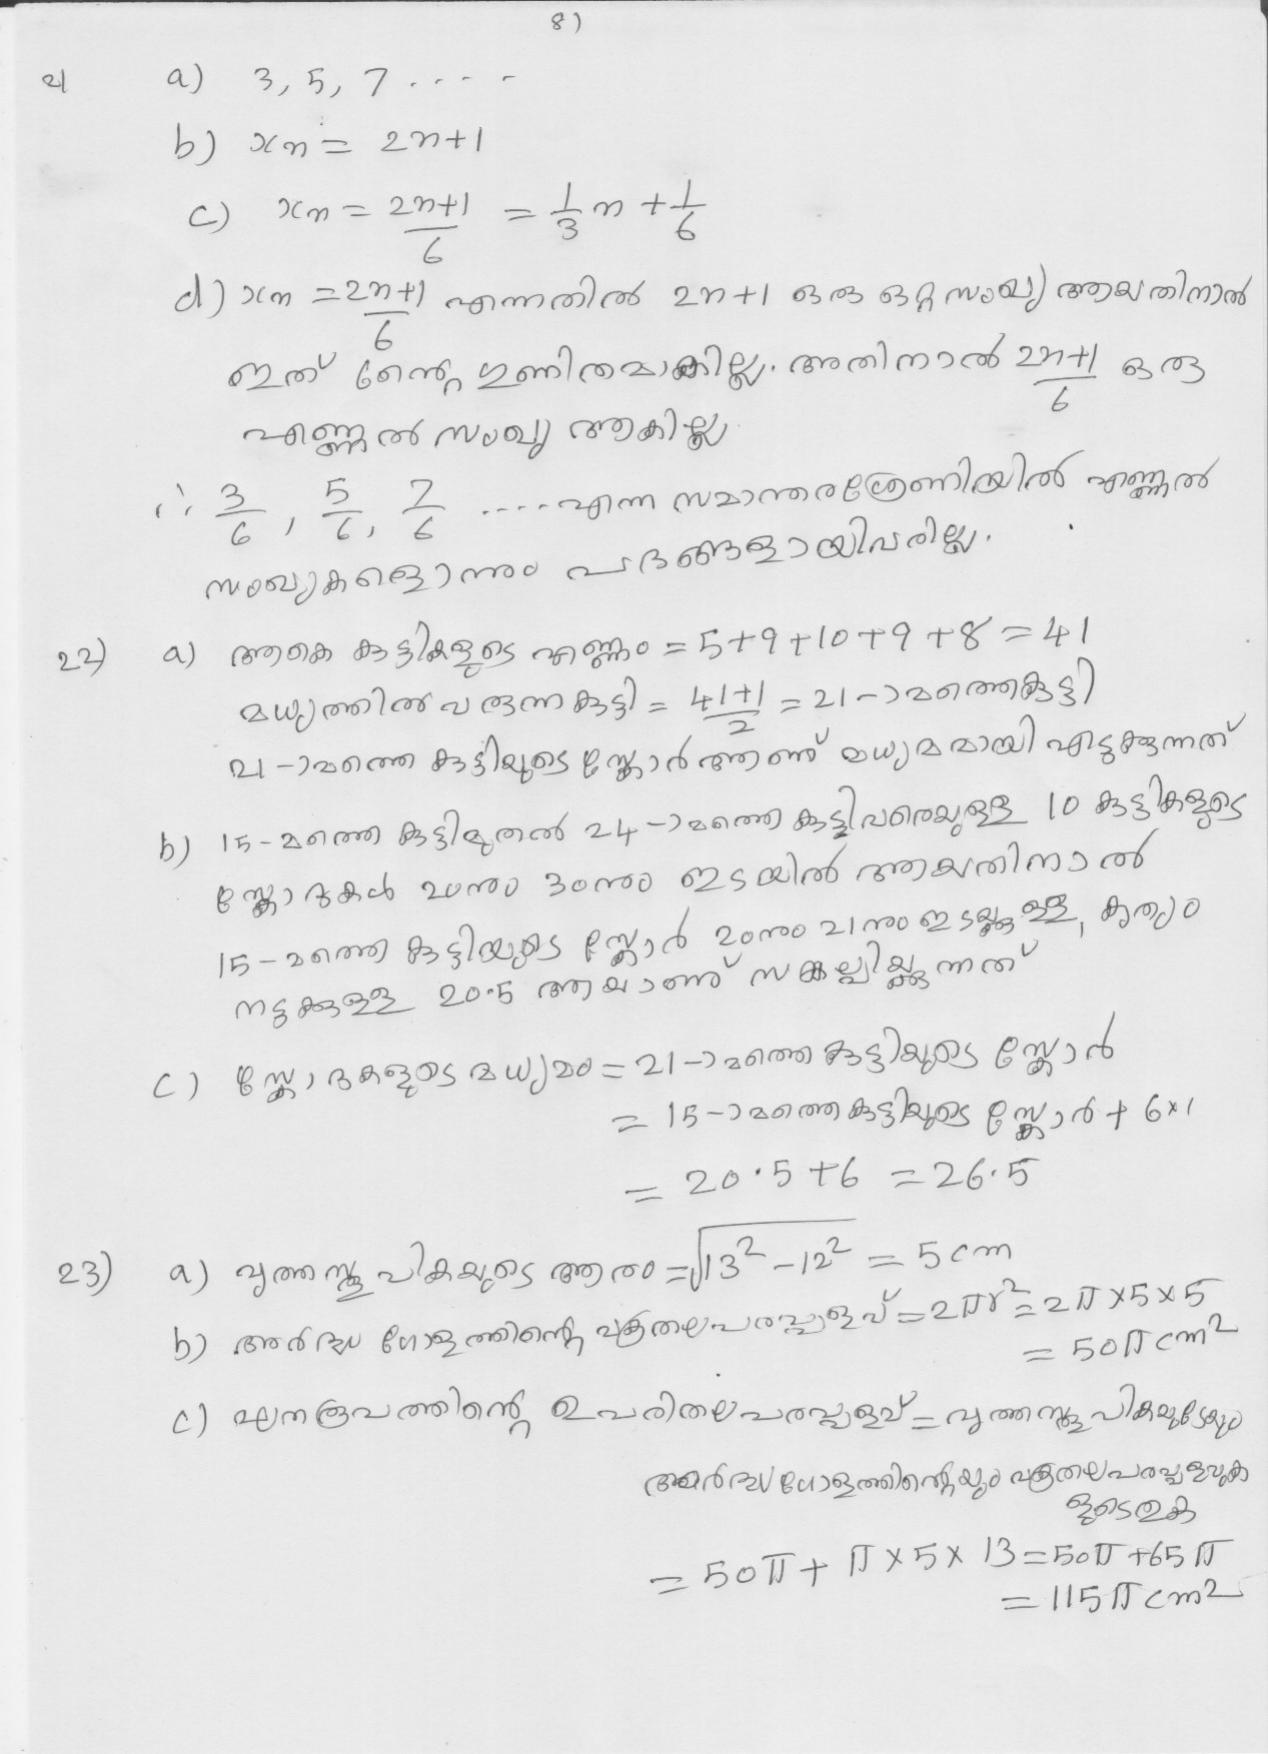 8)
21 a) 3, 5, 7 ....
b) xn = 2n+1
c) xn = 2n+1/6 = 1/3 n + 1/6
d) xn = 2n+1/6 എന്നതിൽ 2n+1 ഒരു ഒറ്റ സംഖ്യ ആയതിനാൽ
ഇത് 6ന്റെ ഗുണിതമാകില്ല. അതിനാൽ 2n+1/6 ഒരു
എണ്ണൽ സംഖ്യ ആകില്ല
∴ 3/6, 5/6, 7/6 .... എന്ന സമാന്തരശ്രേണിയിൽ എണ്ണൽ
സംഖ്യകളൊന്നും പദങ്ങളായിവരില്ല.
22) a) ആകെ കുട്ടികളുടെ എണ്ണം = 5+9+10+9+8 = 41
മധ്യത്തിൽ വരുന്ന കുട്ടി = 41+1/2 = 21-ാമത്തെകുട്ടി
21-ാമത്തെ കുട്ടിയുടെ സ്കോർ ആണ് മധ്യമമായി എടുക്കുന്നത്
b) 15-മത്തെ കുട്ടിമുതൽ 24-ാമത്തെ കുട്ടിവരെയുള്ള 10 കുട്ടികളുടെ
സ്കോറുകൾ 20നും 30നും ഇടയിൽ ആയതിനാൽ
15-മത്തെ കുട്ടിയുടെ സ്കോർ 20നും 21നും ഇടയ്ക്കുള്ള, കൃത്യം
നടുക്കുള്ള 20.5 ആയാണ് സങ്കല്പിയ്ക്കുന്നത്
c) സ്കോറുകളുടെ മധ്യമം = 21-ാമത്തെ കുട്ടിയുടെ സ്കോർ
= 15-ാമത്തെ കുട്ടിയുടെ സ്കോർ + 6×1
= 20.5+6 = 26.5
23) a) വൃത്തസ്തൂപികയുടെ ആരം = √13² - 12² = 5 cm
b) അർദ്ധ ഗോളത്തിന്റെ വക്രതലപരപ്പളവ് = 2πr² = 2π×5×5
= 50π cm²
c) ഘനരൂപത്തിന്റെ ഉപരിതലപരപ്പളവ് = വൃത്തസ്തൂപികയുടേയും
അർദ്ധഗോളത്തിന്റെയും വക്രതലപരപ്പളവുക
ളുടെ തുക
= 50π + π×5×13 = 50π+65π
= 115π cm²